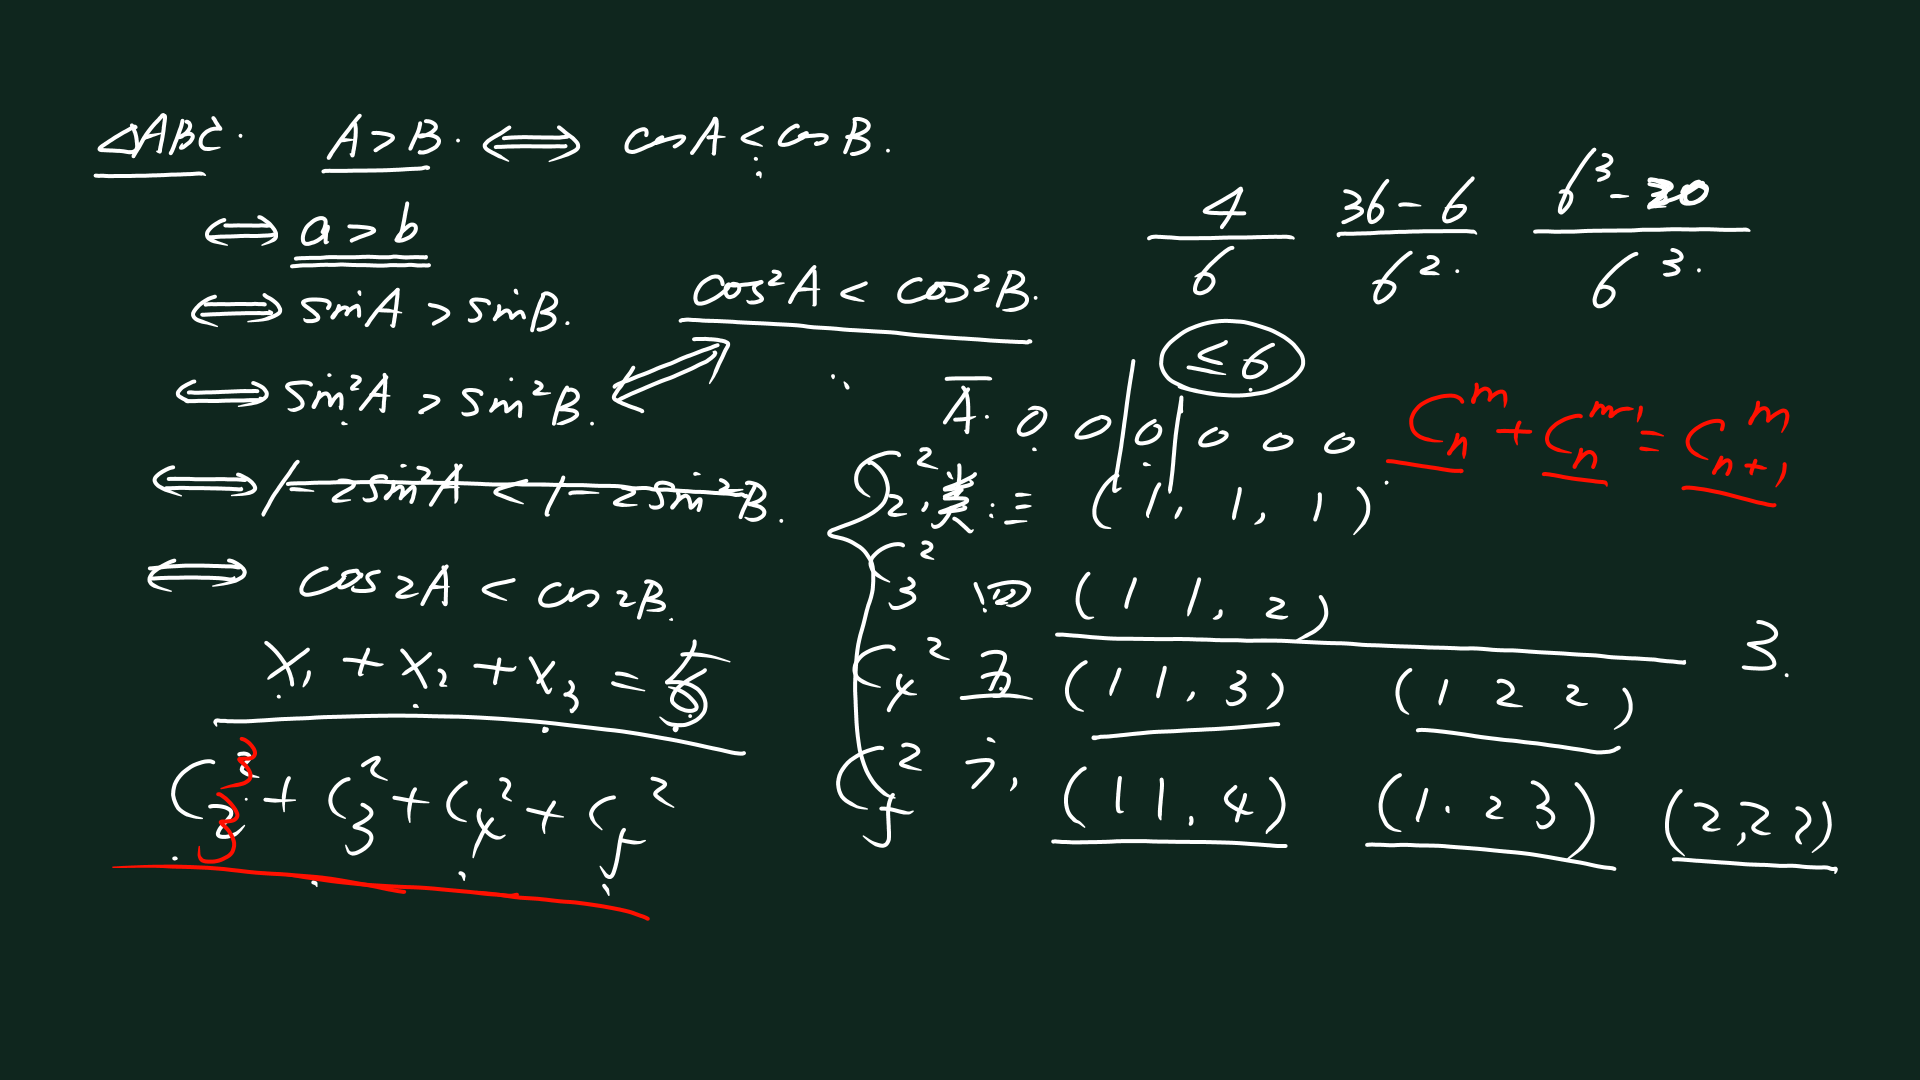 △ABC. A>B. ⟺ cosA < cosB.
⟺ a > b
⟺ sinA > sinB.
cos²A < cos²B.
⟺ sin²A > sin²B.
⟺ 1-2sin²A < 1-2sin²B.
⟺ cos2A < cos2B.
x₁ + x₂ + x₃ =
C₃³ + C₃² + C₄² + C₅²
4/6 (36-6)/6². (6³-20)/6³.
≤6
Ā. 0 0 | 0 | 0 0 0
Cₙᵐ + Cₙᵐ⁻¹ = Cₙ₊₁ᵐ
C₂² 类: 三 (1, 1, 1)
C₃² 四 (1 1, 2) 3.
C₄² 五 (1 1, 3) (1 2 2)
C₅² 六, (1 1, 4) (1. 2 3) (2,2 2)